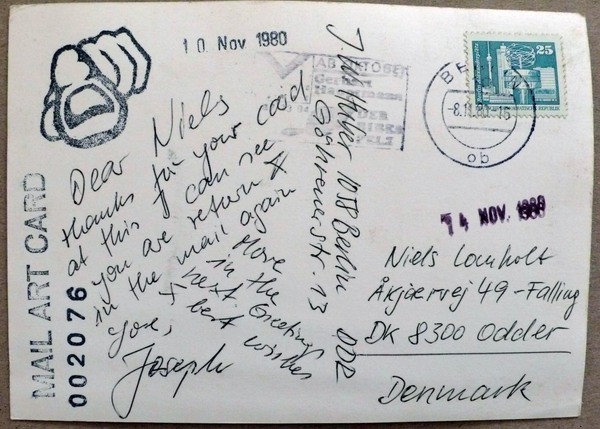 10 Nov 1980
MAIL ART CARD
002076
Dear Niels
thanks for your card
at this I can see
you are return
in the mail again
More
in the
next. Greetings
+ best wishes
you,
Joseph
J. W. Huber 1058 Berlin
Göhrener str. 13
DDR
AB OKTOBER
Gerhart
Hauptmann
DER
BIBER
PELZ
BERLIN
-8.11.80-15
ob
25
14 NOV. 1980
Niels Lomholt
Åkjærvej 49 - Falling
DK 8300 Odder
Denmark